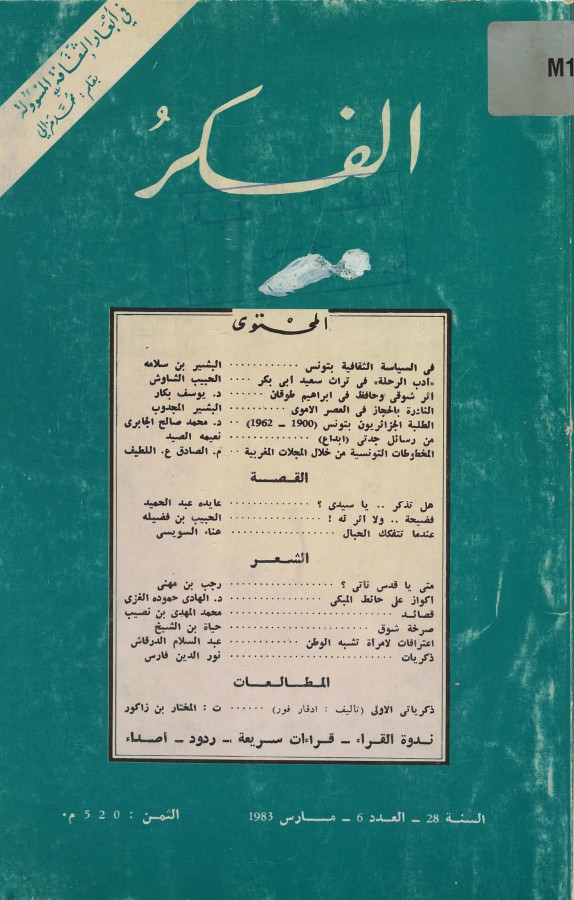 في أبعاد الثقافة المسؤولة
بقلم: محمد مزالي
M1
الفكر
المحتوى
في السياسة الثقافية بتونس ........... البشير بن سلامه
«أدب الرحلة» في تراث سعيد أبي بكر .... الحبيب الشاوش
أثر شوقي وحافظ في ابراهيم طوقان ..... د. يوسف بكار
النادرة بالحجاز في العصر الاموى ....... البشير المجدوب
الطلبة الجزائريون بتونس (1900 ــ 1962) .. د. محمد صالح الجابرى
من رسائل جدتي (ابداع) ............. نعيمه الصيد
المخطوطات التونسية من خلال المجلات المغربية .. م. الصادق ع. اللطيف
القصة
هل تذكر .. يا سيدى ؟ ............ عايده عبد الحميد
فضيحة .. ولا اثر له ! ............ الحبيب بن فضيله
عندما تتفكك الحبال .............. هناء السويسي
الشعر
متى يا قدس تأتي ؟ .............. رجب بن مهنى
اكواز على حائط المبكى ........... د. الهادى حموده الغزى
قصائد .................. محمد المهدى بن نصيب
صرخة شوق ................. حياة بن الشيخ
اعترافات لامرأة تشبه الوطن ......... عبد السلام الدرقاش
ذكريات .................. نور الدين فارس
المطالعات
ذكرياتى الاولى (تأليف : ادقار فور) ...... ت : المختار بن زاكور
ندوة القراء ــ قراءات سريعة ــ ردود ــ أصداء
السنة 28 ــ العدد 6 ــ مارس 1983
الثمن : 520 م.